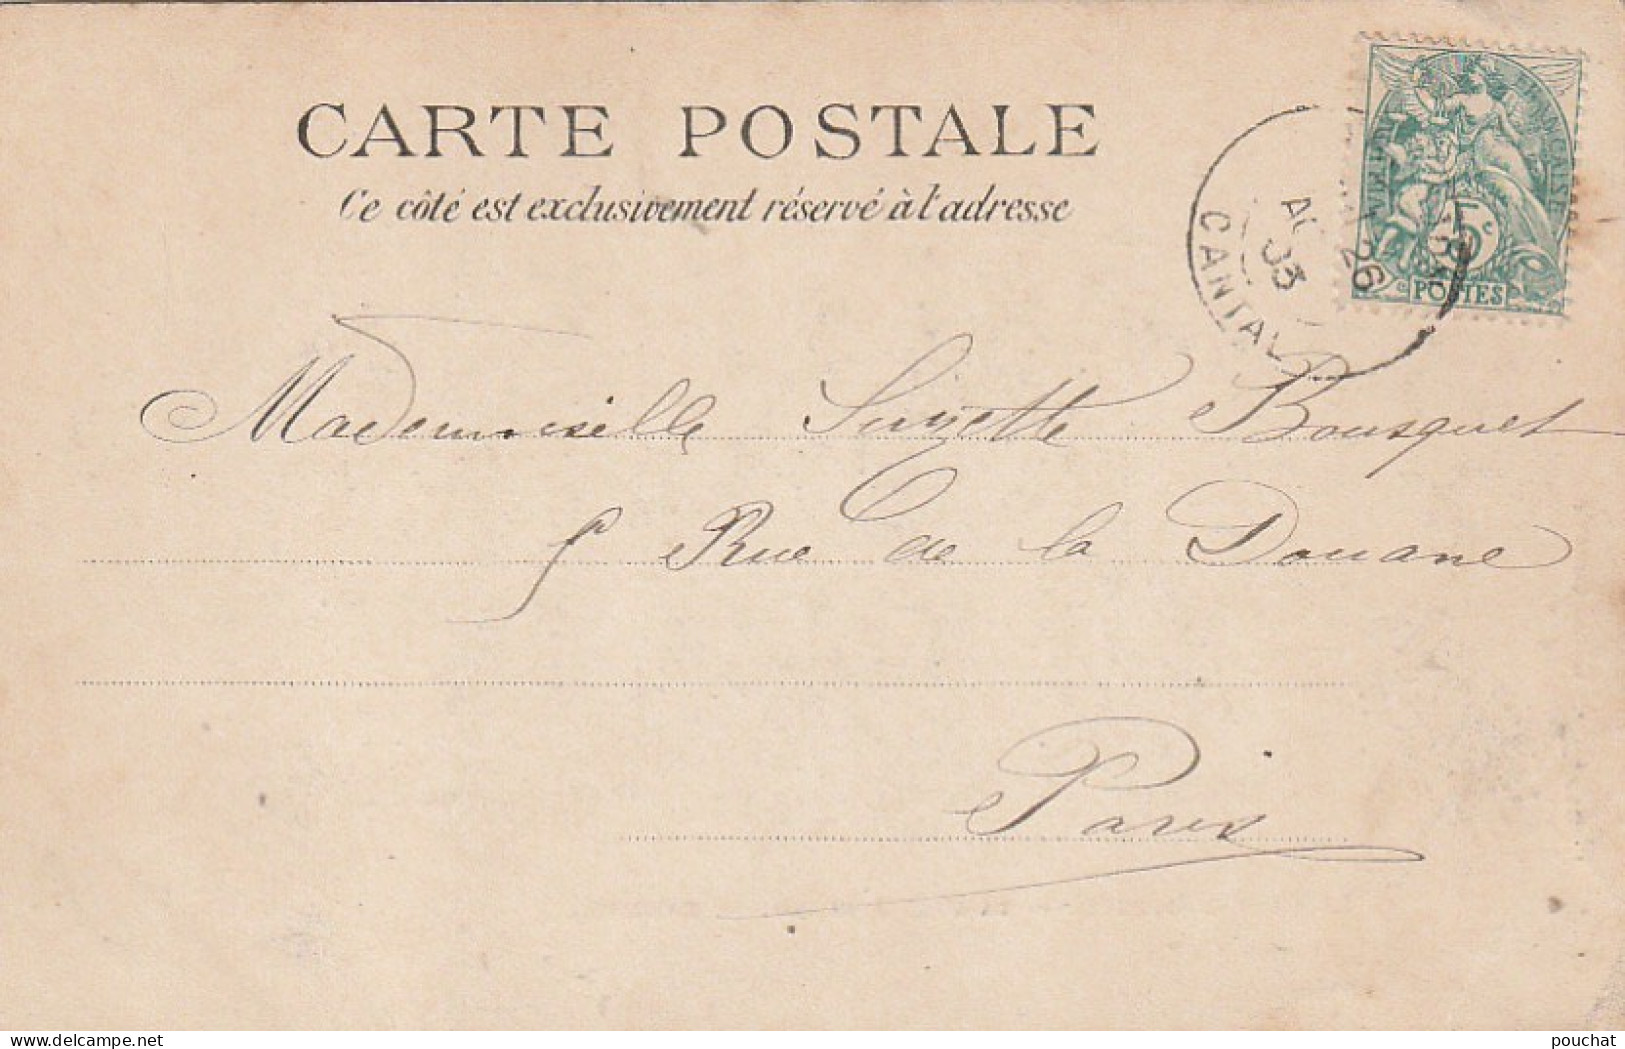 CARTE POSTALE
Ce côté est exclusivement réservé à l'adresse
RÉPUBLIQUE FRANÇAISE
5c
POSTES
26
03
CANTAL
Mademoiselle Suzette Bousquet
5 Rue de la Douane
Paris
delcampe.net
pouchat